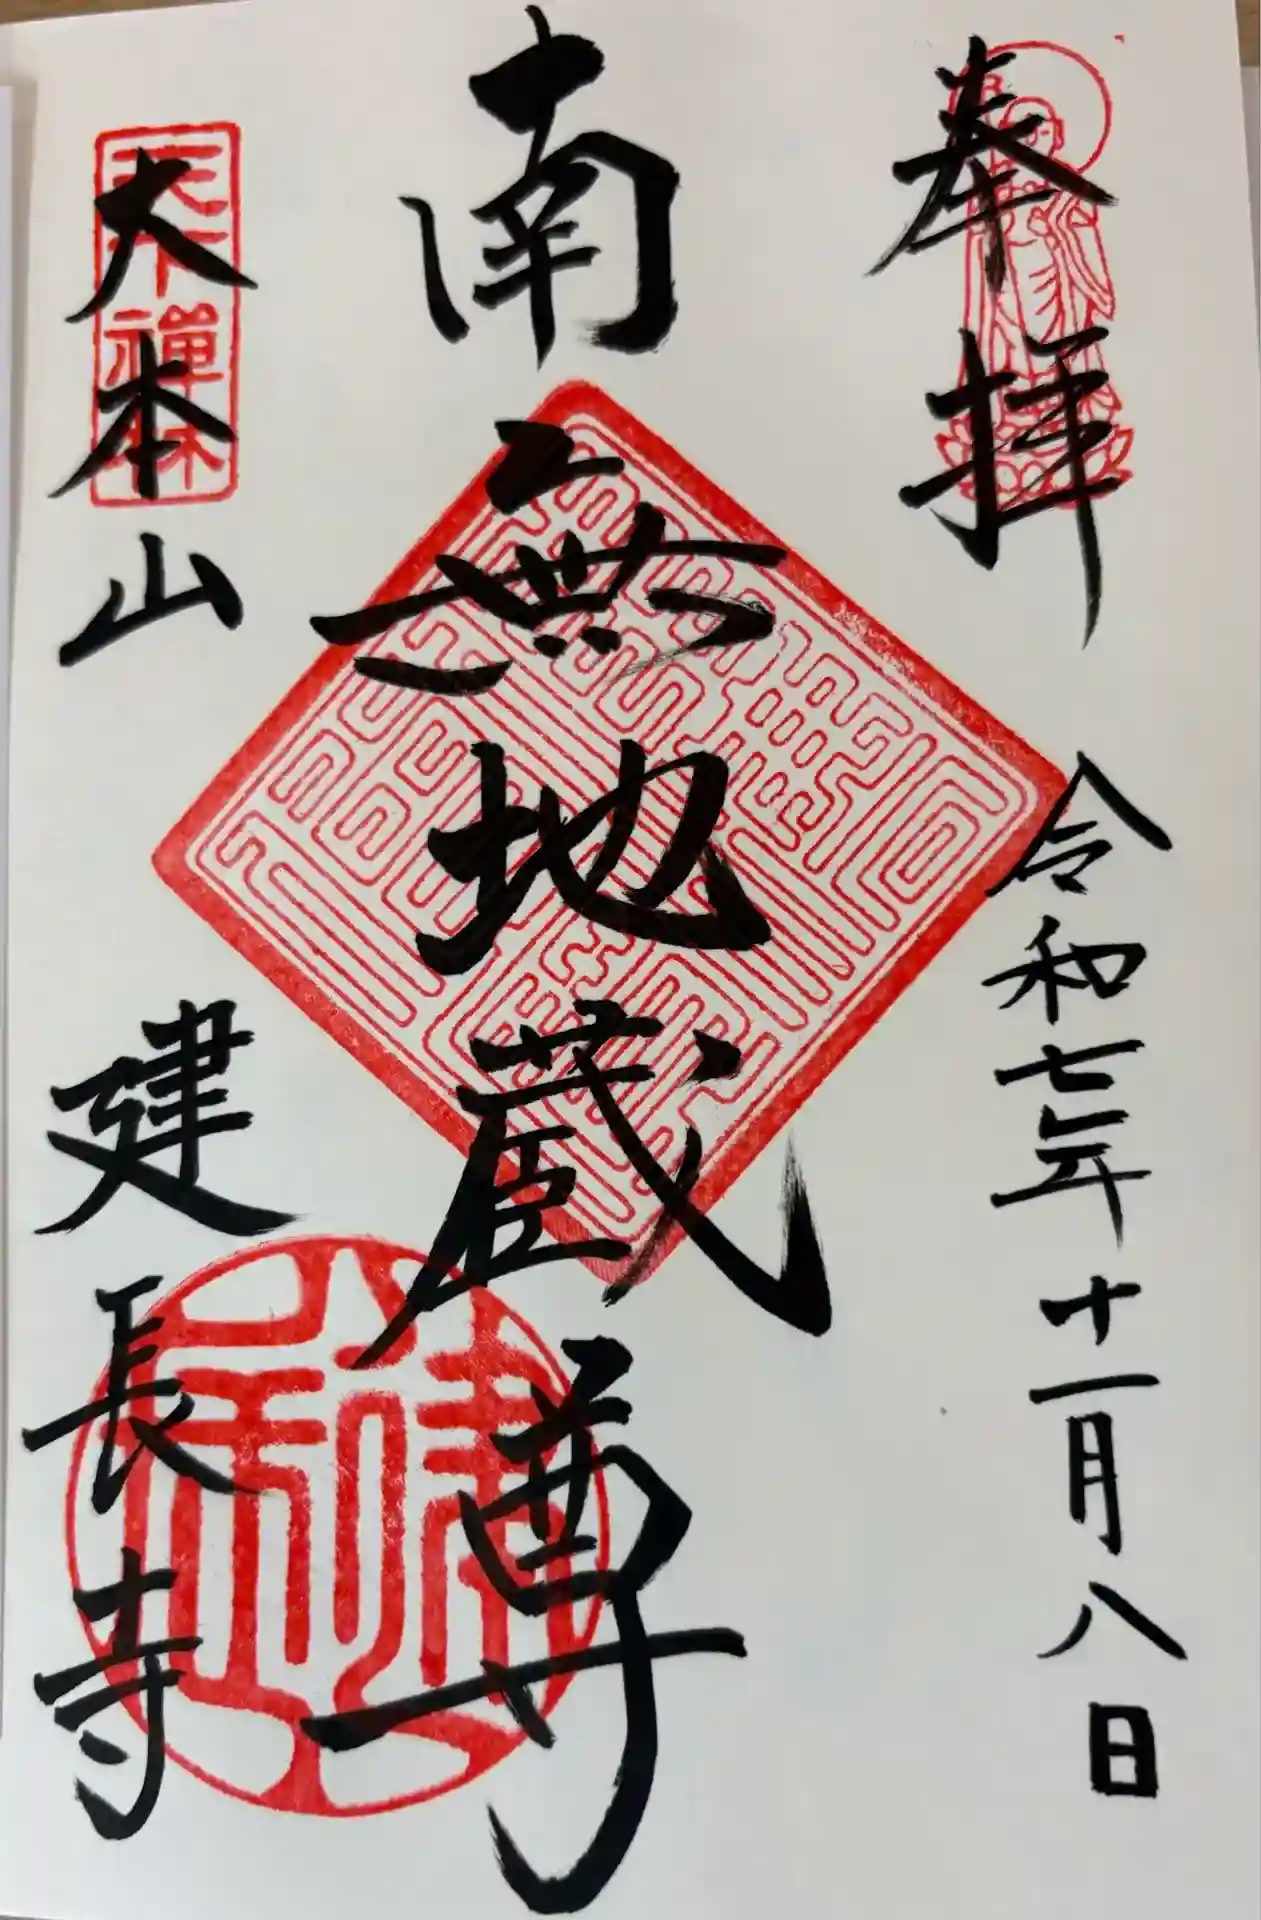 奉拝
令和七年十一月八日
南無地蔵尊
大本山
建長寺
天下禅林